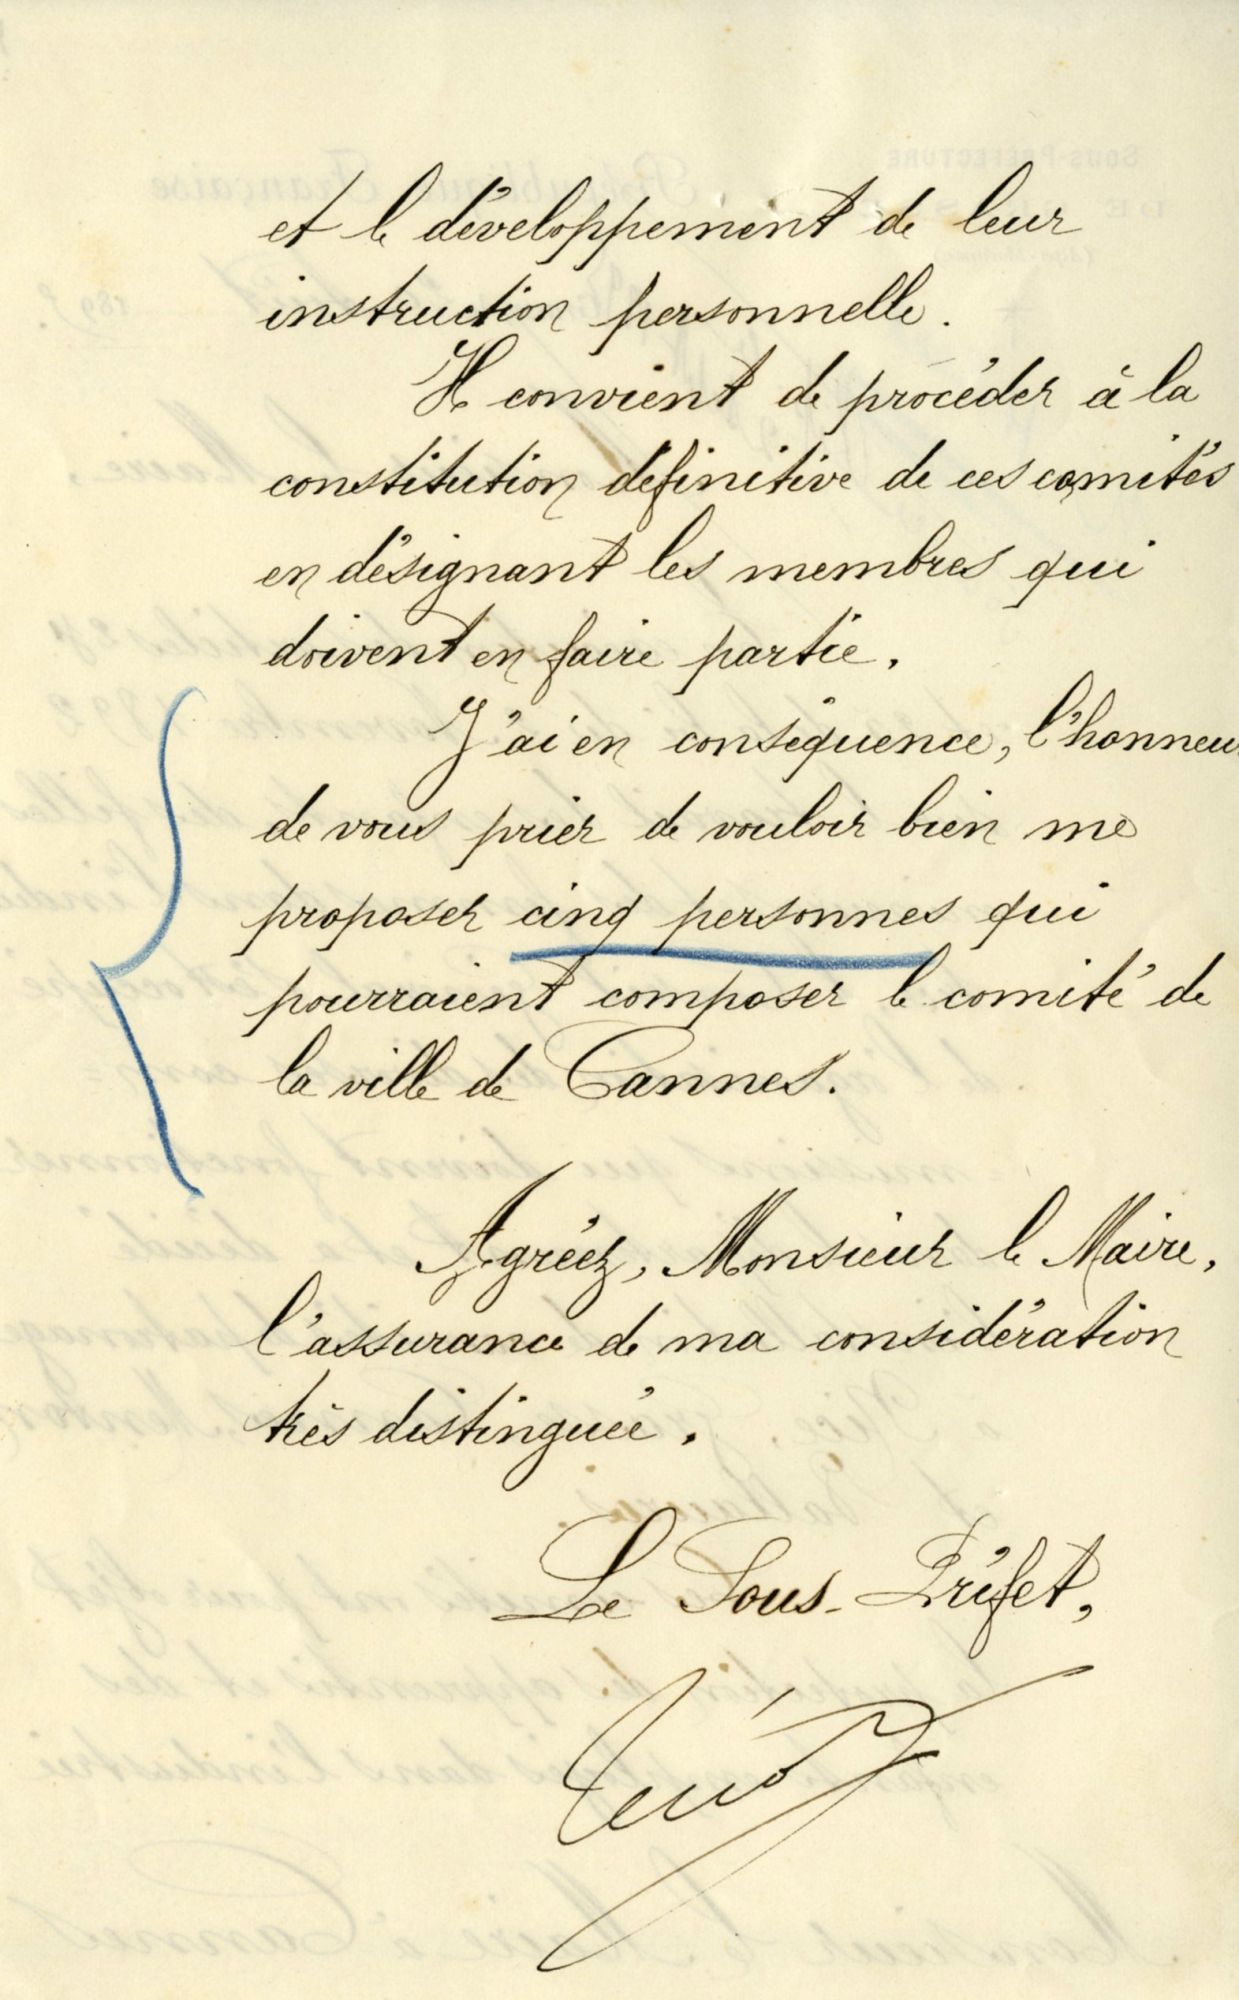 et le développement de leur
instruction personnelle.
Il convient de procéder à la
constitution définitive de ces comités
en désignant les membres qui
doivent en faire partie.
J'ai en conséquence, l'honneu
de vous prier de vouloir bien me
proposer cinq personnes qui
pourraient composer le comité de
la ville de Cannes.
Agréez, Monsieur le Maire,
l'assurance de ma considération
très distinguée.
Le Sous-Préfet,